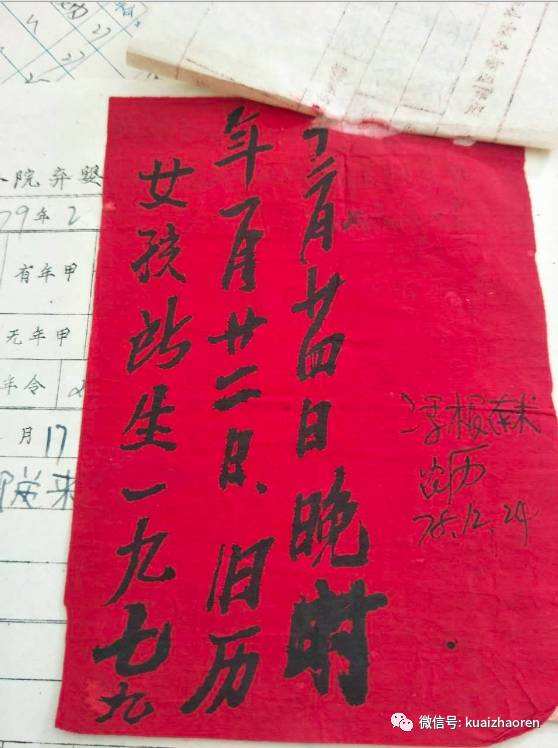 院弃婴
79年2
有年甲
无年甲
年令
月17
来
女孩所生一九七九
年一月廿二日、旧历
十二月廿四日晚时
农历
78.12.24
微信号: kuaizhaoren